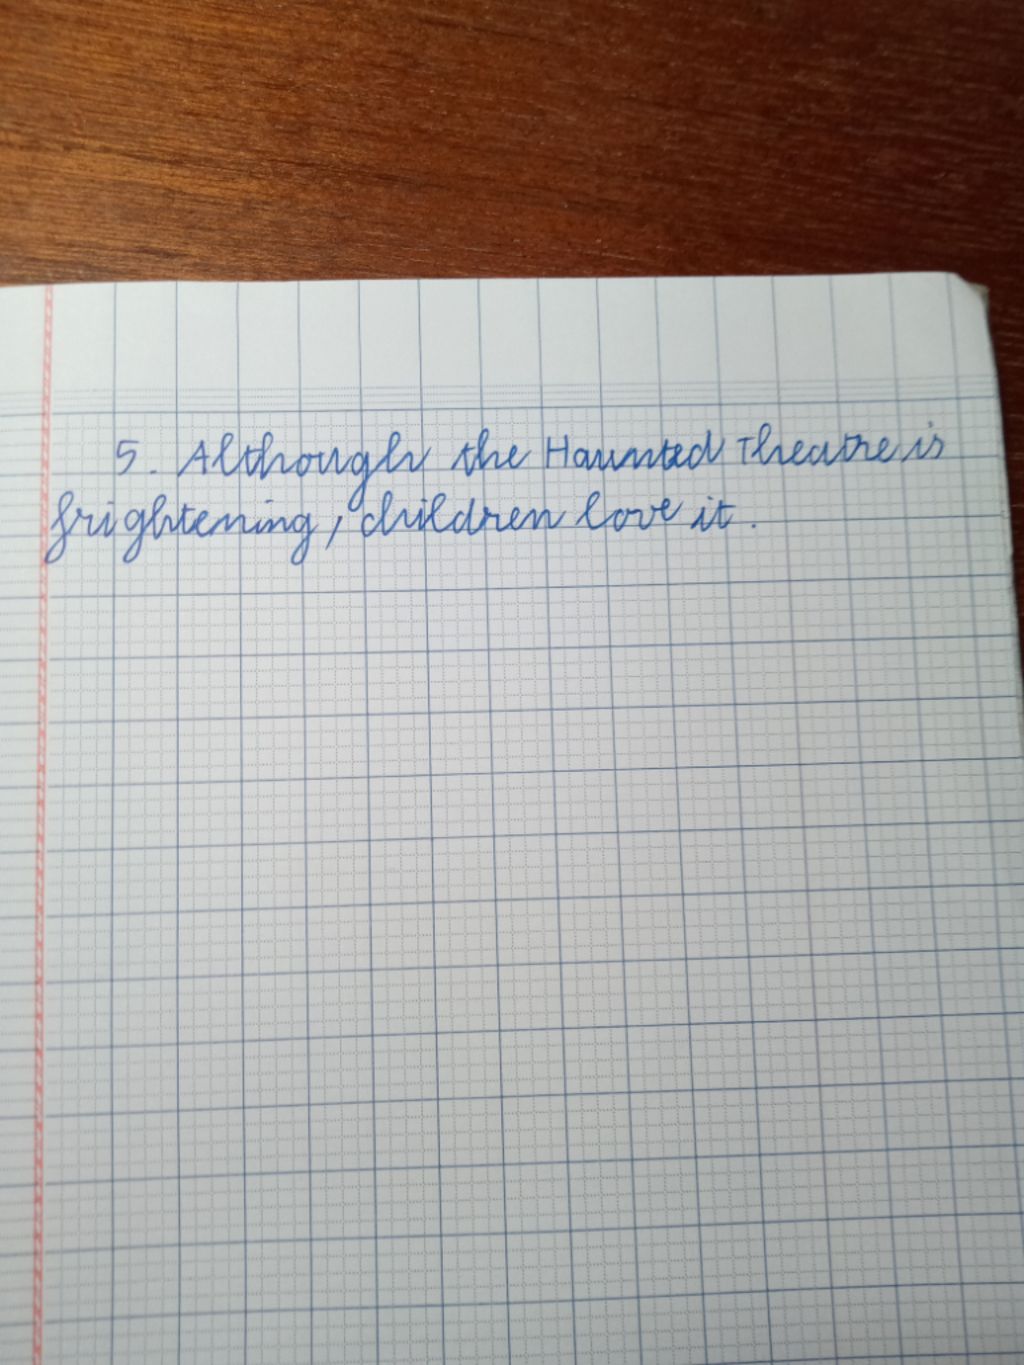 5. Although the Haunted Theatre is
frightening, children love it.